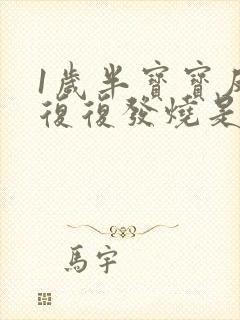 1歲半寶寶反
復復發燒是
馬宇